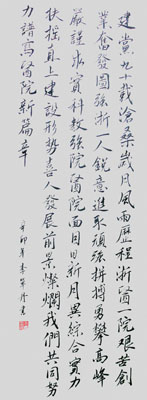 建黨九十載滄桑歲月風雨歷程浙醫一院艱苦創
業奮發圖強浙一人銳意進取頑強拼搏勇攀高峰
嚴謹求實科教強院醫院面目日新月異綜合實力
扶搖直上建設形勢喜人發展前景燦爛我們共同努
力譜寫醫院新篇章
辛卯年